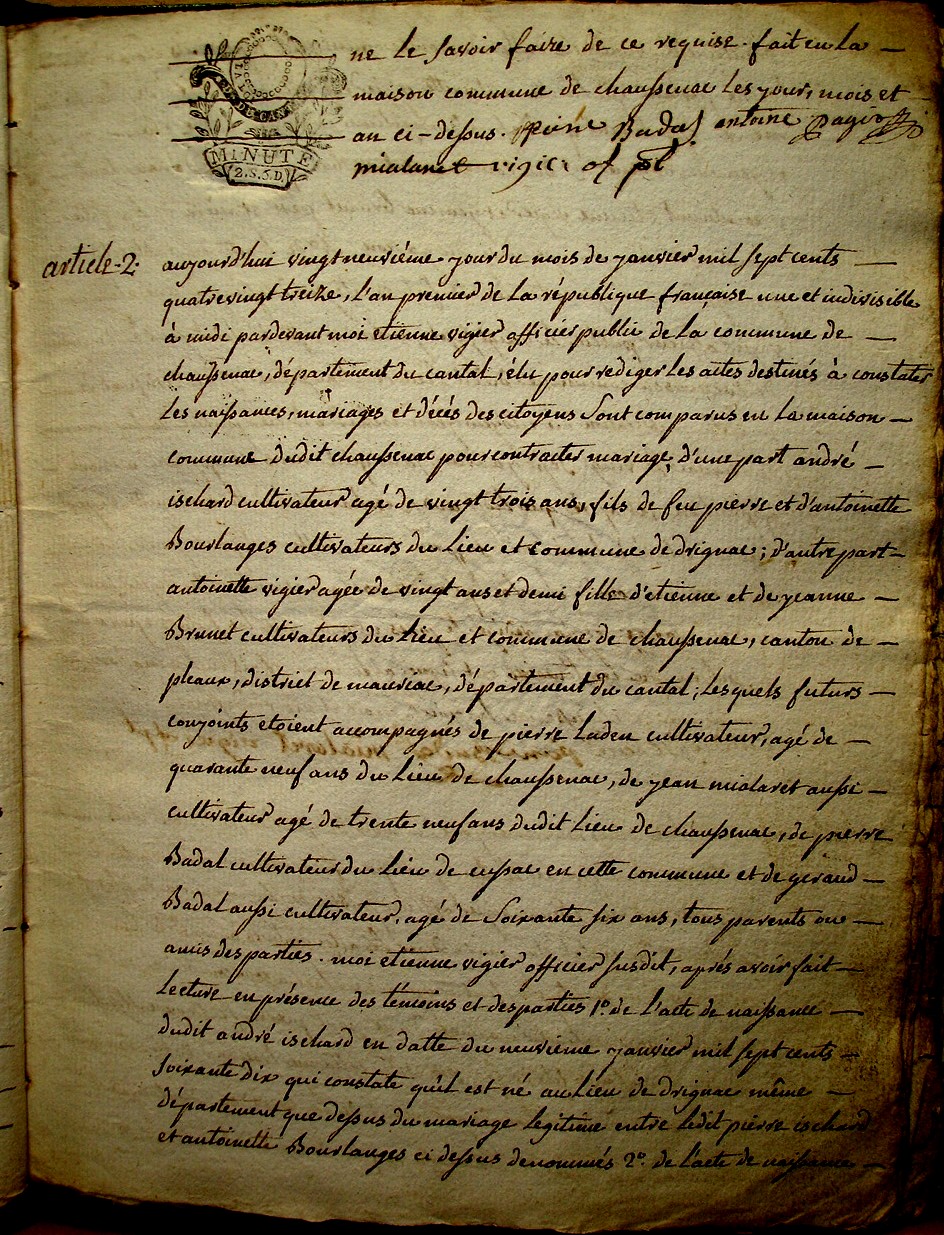 ne le savoir faire de ce requise. fait en la —
maison commune de chaussenac les jour, mois et
an ci-dessus. pierre Badal antoine pagis
mialaret vigier of. pl
DU CANTAL
MINUTE
2.S.5.D.
article-2.
aujourd'hui vingt neuviéme jour du mois de janvier mil sept cents —
quatrevingt treize, l'an premier de la république française une et indivisible
à midi pardevant moi etienne vigier officier public de la commune de —
chaussenac, département du cantal, élu pour rediger les actes destinés à constater
les naissances, mariages et décés des citoyens sont comparus en la maison —
commune dudit chaussenac pour contracter mariage, d'une part andré —
ischard cultivateur agé de vingt trois ans, fils de feu pierre et d'antoinette
Bourlanges cultivateurs du lieu et commune de drignac; d'autre part —
antoinette vigier agée de vingt ans et demi fille d'etienne et de jeanne —
Brunet cultivateurs du lieu et commune de chaussenac, canton de —
pleaux, district de mauriac, département du cantal; lesquels futurs —
conjoints etoient accompagnés de pierre Laden cultivateur, agé de —
quarante neuf ans du lieu de chaussenac, de jean mialaret aussi —
cultivateur agé de trente neuf ans dudit lieu de chaussenac, de pierre
Badal cultivateur du lieu de cussac en cette commune et de geraud —
Badal aussi cultivateur, agé de soixante six ans, tous parents ou —
amis des parties. moi etienne vigier officier susdit, aprés avoir fait —
lecture en présence des témoins et des parties 1º de l'acte de naissance —
dudit andré ischard en datte du neuvième janvier mil sept cents —
soixante dix qui constate qu'il est né au lieu de drignac même —
département que dessus du mariage legitime entre ledit pierre ischard
et antoinette Bourlanges ci dessus denommés 2º. de l'acte de naissance —